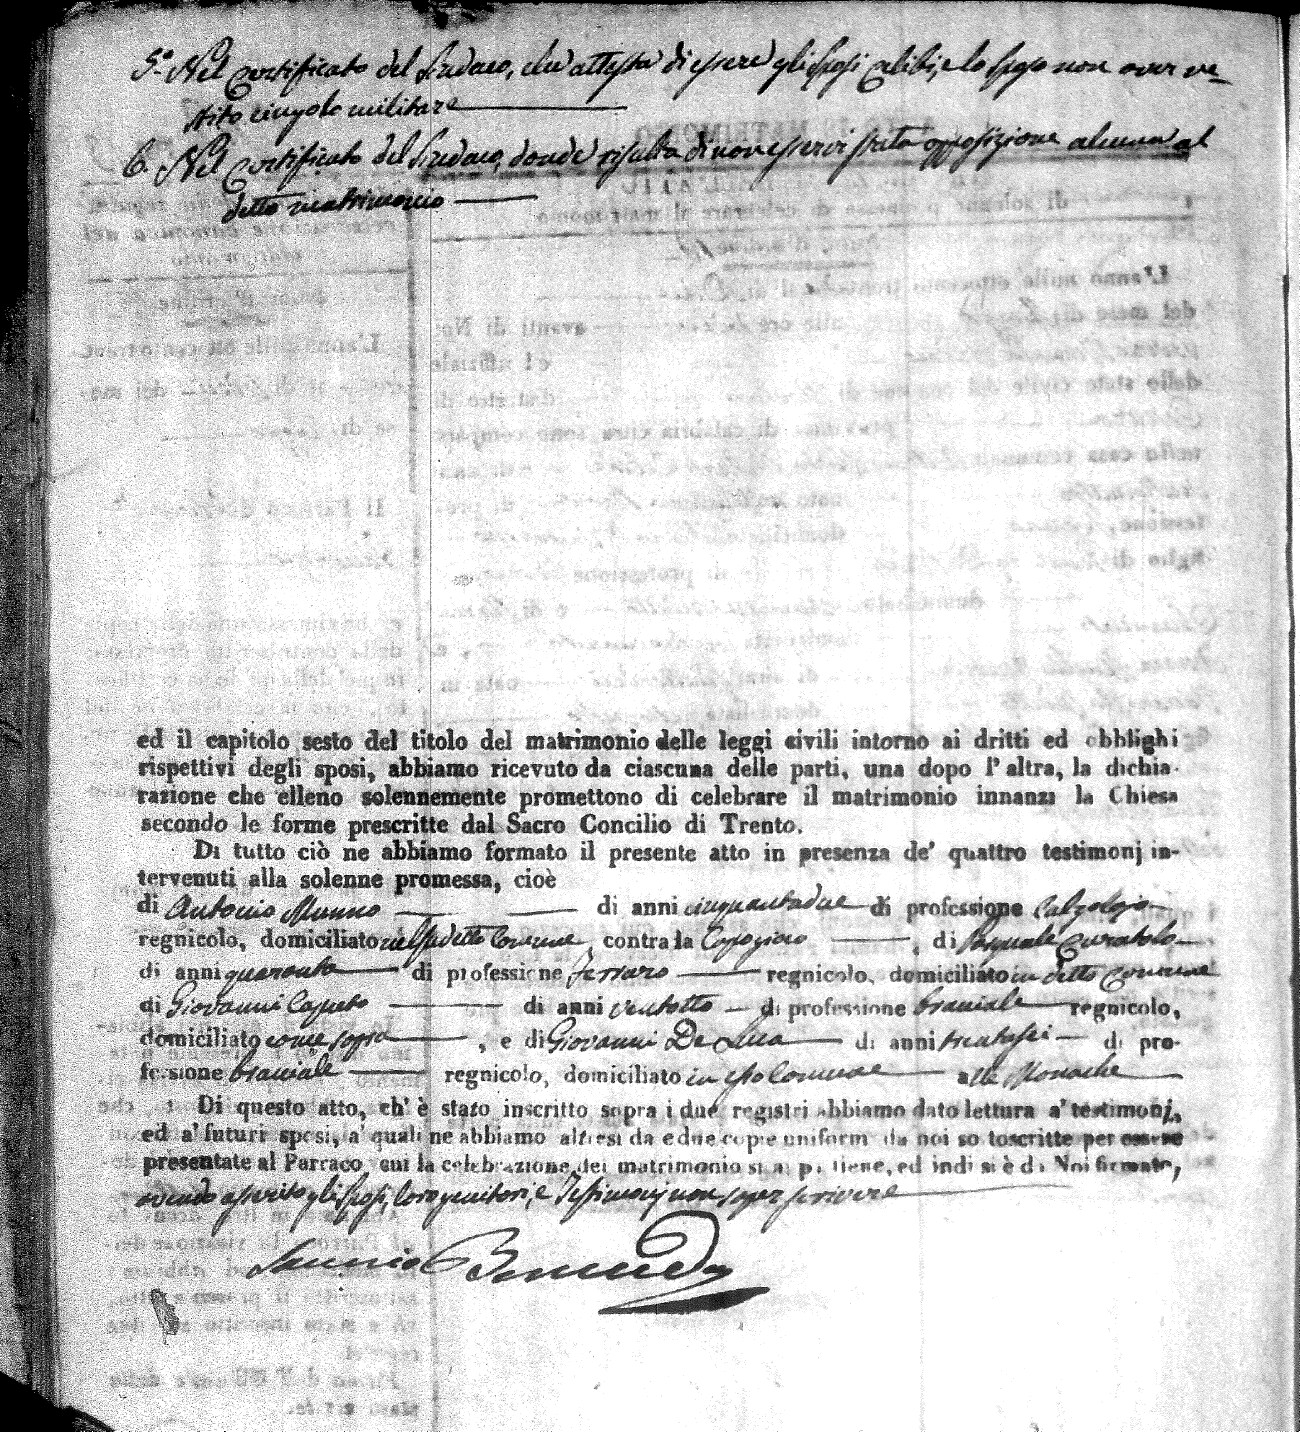 5.° Nel Certificato del Sindaco, che attesta di essere gli sposi celibi, e lo sposo non aver ve-
stito cingolo militare
6. Nel Certificato del Sindaco, donde risulta di non esservi stata opposizione alcuna al
detto matrimonio
ed il capitolo sesto del titolo del matrimonio delle leggi civili intorno ai dritti ed obblighi
rispettivi degli sposi, abbiamo ricevuto da ciascuna delle parti, una dopo l'altra, la dichia-
razione che elleno solennemente promettono di celebrare il matrimonio innanzi la Chiesa
secondo le forme prescritte dal Sacro Concilio di Trento.
Di tutto ciò ne abbiamo formato il presente atto in presenza de' quattro testimonj in-
tervenuti alla solenne promessa, cioè
di Antonio Munno di anni cinquantadue di professione Calzolajo
regnicolo, domiciliato nel sudetto Comune, contrada Capogiro, di Pasquale Curatolo
di anni quaranta di professione Ferraro regnicolo, domiciliato in detto Comune
di Giovanni Caputo di anni ventotto di professione bracciale regnicolo,
domiciliato come sopra, e di Giovanni De Luca di anni trentasei di pro-
fessione bracciale regnicolo, domiciliato in esso Comune alle Monache
Di questo atto, ch' è stato inscritto sopra i due registri abbiamo dato lettura a' testimonj,
ed a' futuri sposi, a' quali ne abbiamo altresì date due copie uniformi da noi sottoscritte per essere
presentate al Parroco, cui la celebrazione del matrimonio si appartiene, ed indi si è da Noi firmato,
avendo asserito gli sposi, loro genitori, e Testimonj non saper scrivere